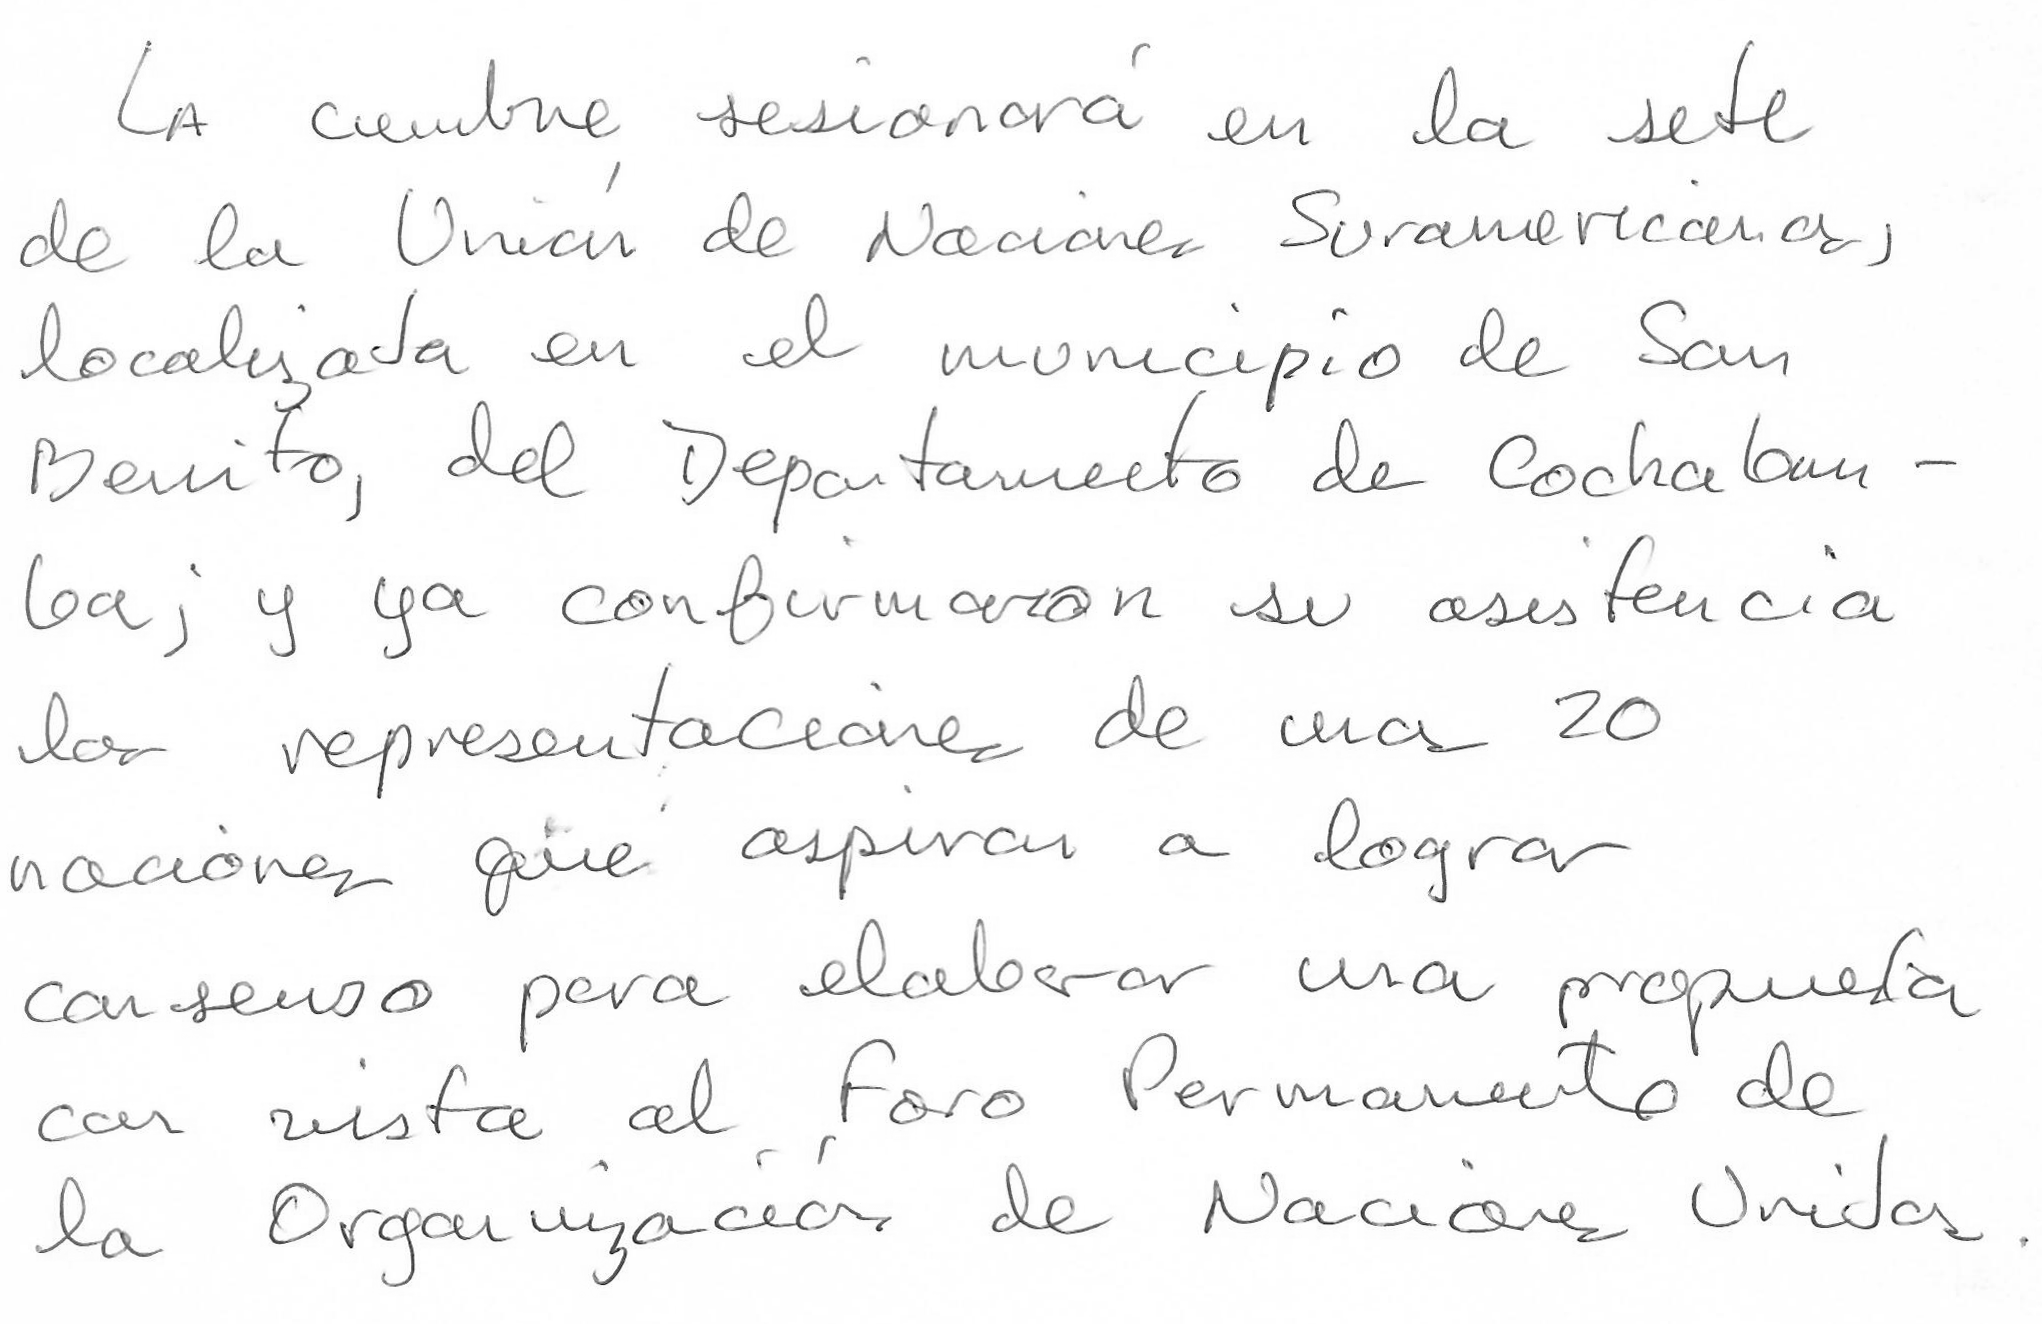 La cumbre sesionará en la sede
de la Unión de Naciones Suramericanas,
localizada en el municipio de San
Benito, del Departamento de Cochabam-
ba; y ya confirmaron su asistencia
las representaciones de unas 20
naciones que aspiran a lograr
consenso para elaborar una propuesta
con vista al Foro Permanente de
la Organización de Naciones Unidas.